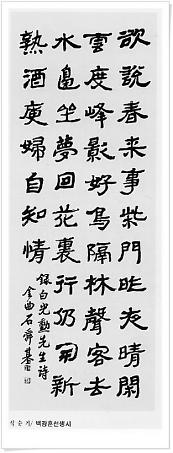 欲說春来事柴門昨夜晴閑
雲度峰影好鳥隔林聲客去
水邊坐夢回花裏行仍聞新
熟酒瘦婦自知情
錄白光勳先生詩
金曲石舜基
석순기/ 백광훈선생시